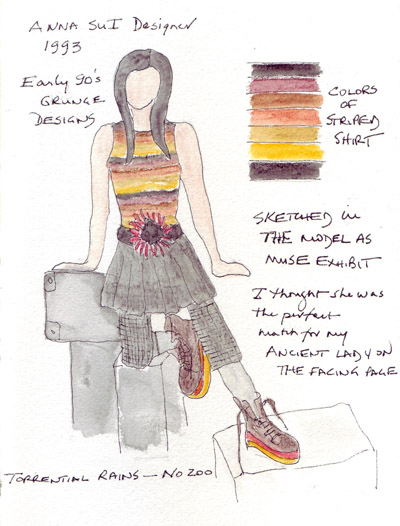 ANNA SUI Designer
1993
Early 90's
GRUNGE
DESIGNS
COLORS
OF
STRIPED
SHIRT
SKETCHED in
THE MODEL AS
MUSE EXHIBIT
I thought she was
the perfect
match for my
ANCIENT LADY ON
THE FACING PAGE
TORRENTIAL RAINS — NO ZOO